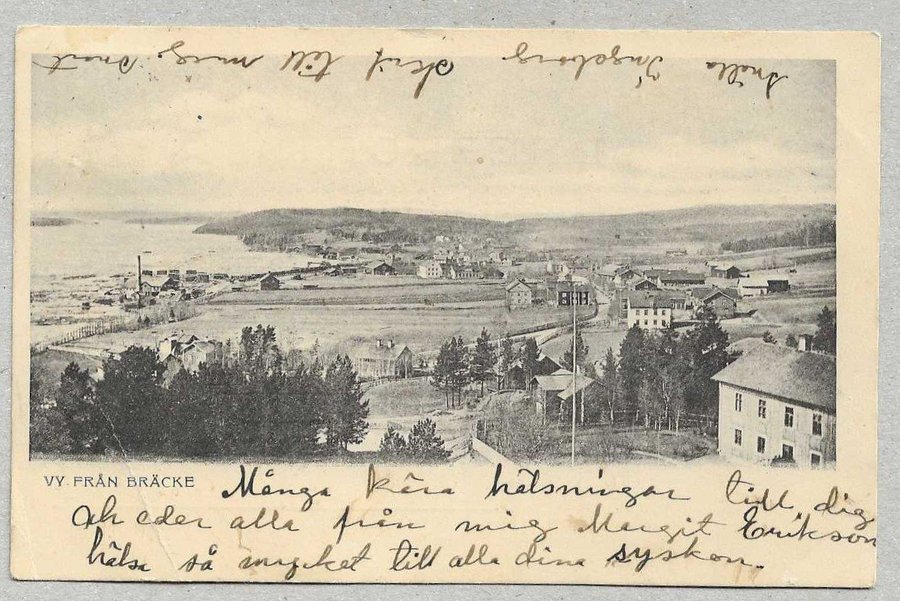 Snälla Ingeborg skrif till mig snart
VY FRÅN BRÄCKE
Många kära hälsningar till dig
och eder alla från mig Margit Erikson
hälsa så mycket till alla dina syskon.